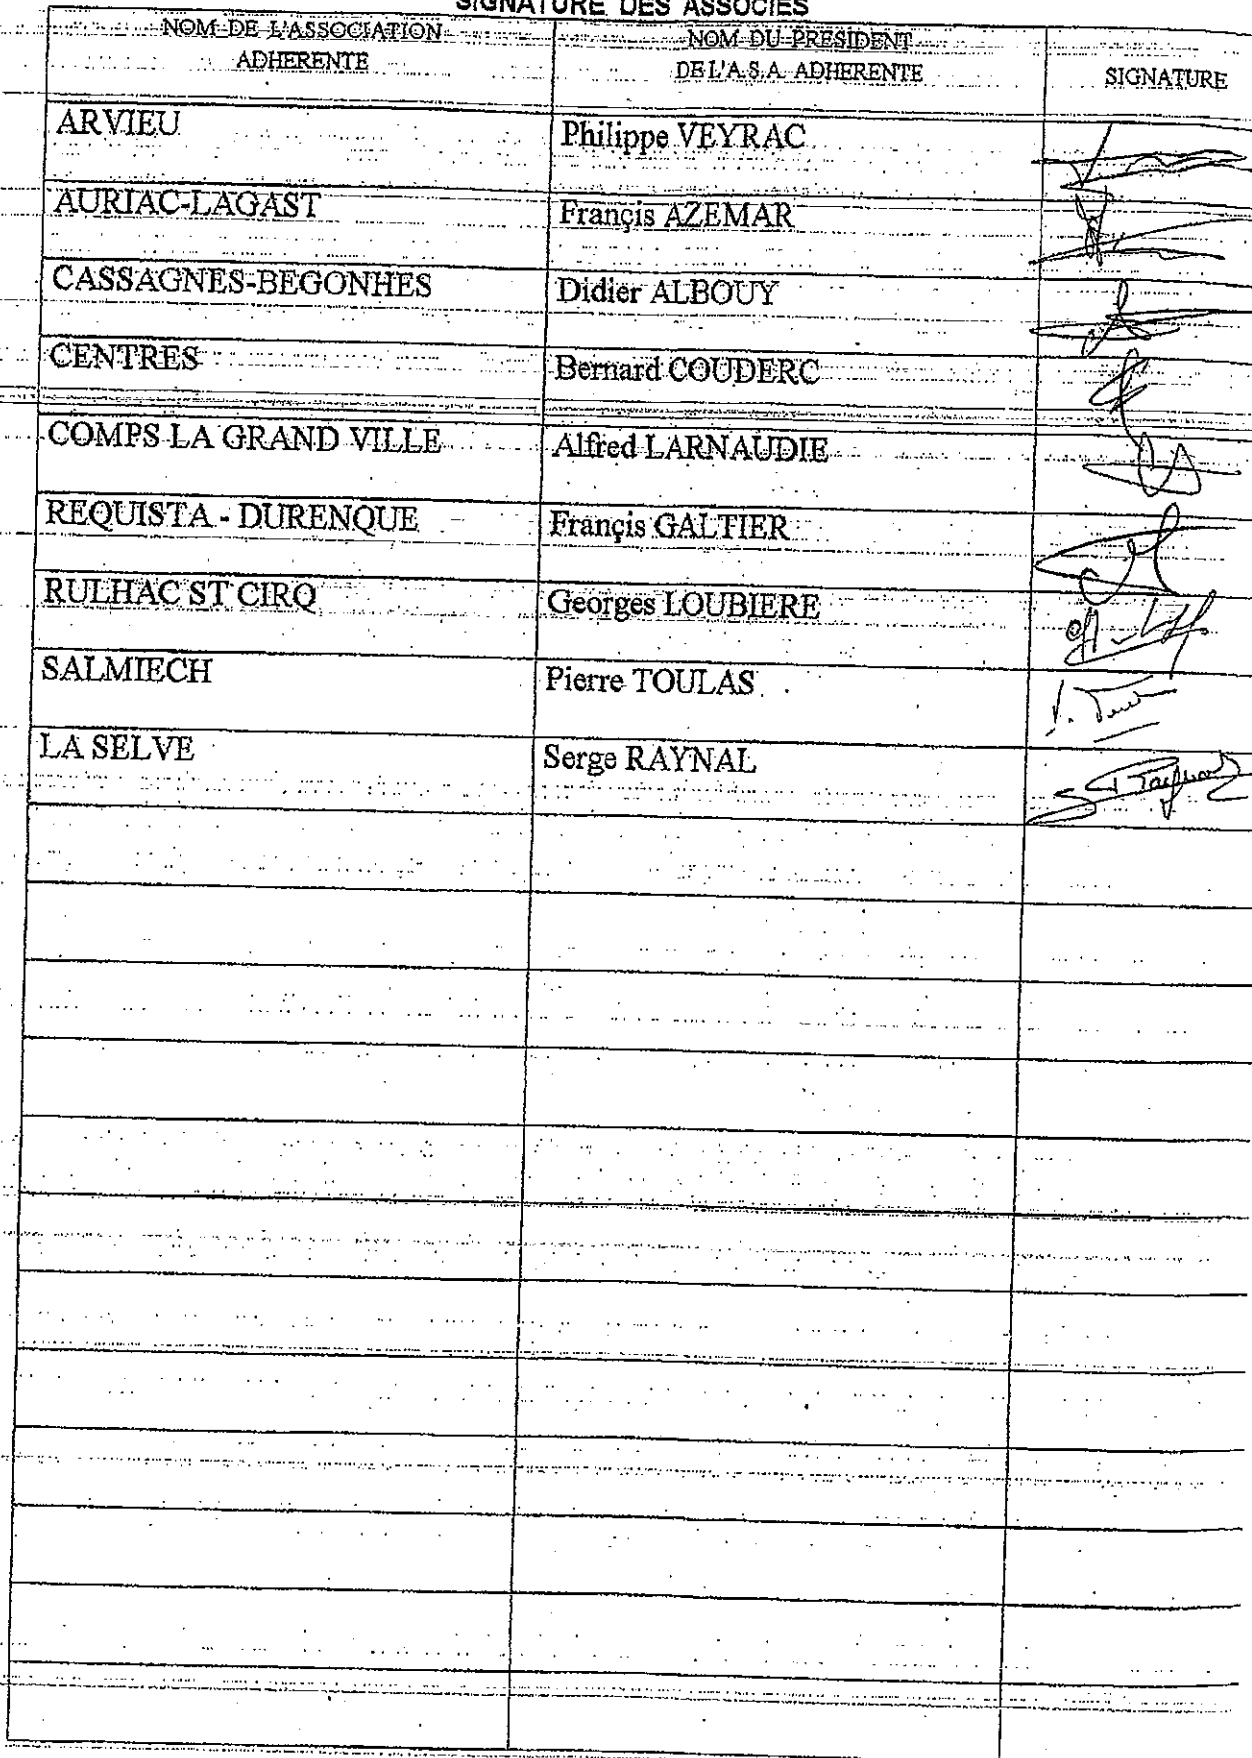 SIGNATURE DES ASSOCIES
NOM DE L'ASSOCIATION
ADHERENTE
NOM DU PRESIDENT
DE L'A.S.A. ADHERENTE
SIGNATURE
ARVIEU Philippe VEYRAC
AURIAC-LAGAST Françis AZEMAR
CASSAGNES-BEGONHES Didier ALBOUY
CENTRES Bernard COUDERC
COMPS LA GRAND VILLE Alfred LARNAUDIE
REQUISTA - DURENQUE Françis GALTIER
RULHAC ST CIRQ Georges LOUBIERE
SALMIECH Pierre TOULAS
LA SELVE Serge RAYNAL